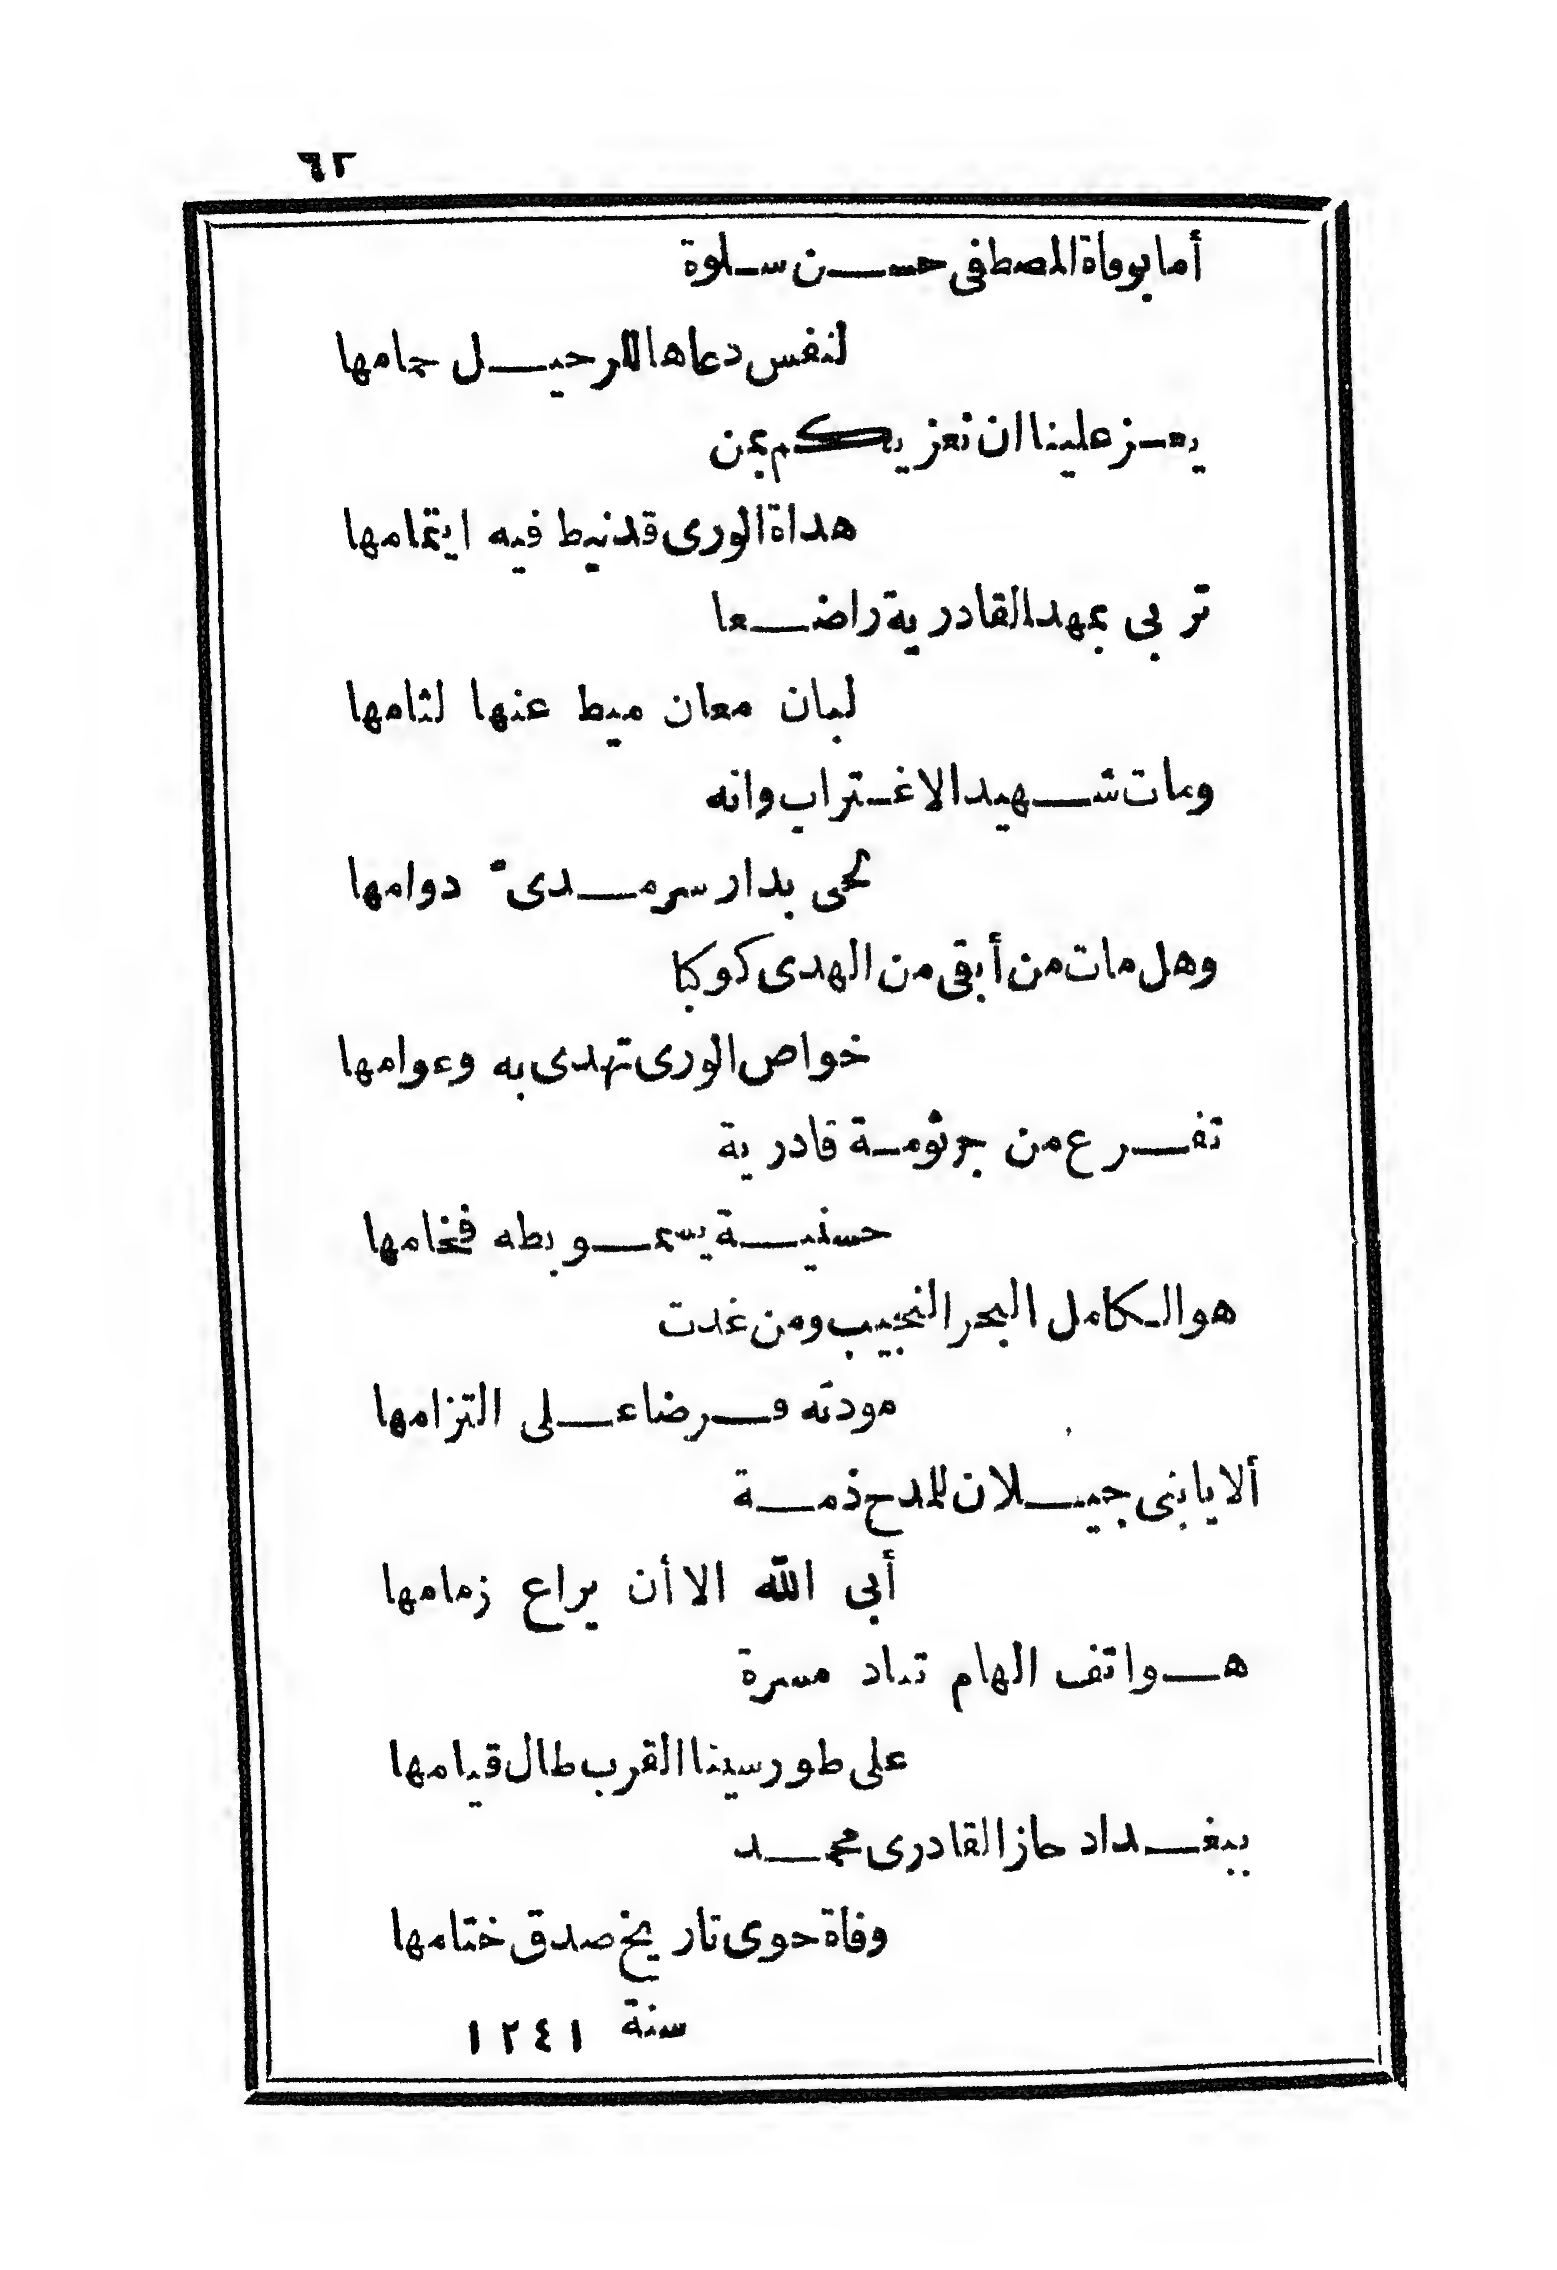 ٦٢
أما بوفاة المصطفى حسن سلوة
لنفس دعاها للرحيل حمامها
يعز علينا ان نعزيكم بمن
هداة الورى قد نيط فيه ايتمامها
تربى بمهد القادرية راضعا
لبان معان ميط عنها لثامها
ومات شهيد الاغتراب وانه
لحى بدار سرمدى دوامها
وهل مات من أبقى من الهدى كوكبا
خواص الورى تهدى به وعوامها
تفرع من جرثومة قادرية
حسنية يسمو بطه فخامها
هو الكامل البحر النجيب ومن غدت
مودته فرضا على التزامها
ألا يا بنى جيلان للمدح ذمة
أبى الله الا أن يراع زمامها
هواتف الهام تباد مسرة
على طور سينا القرب طال قيامها
ببغداد حاز القادرى محمد
وفاة حوى تاريخ صدق ختامها
سنة ١٢٤١